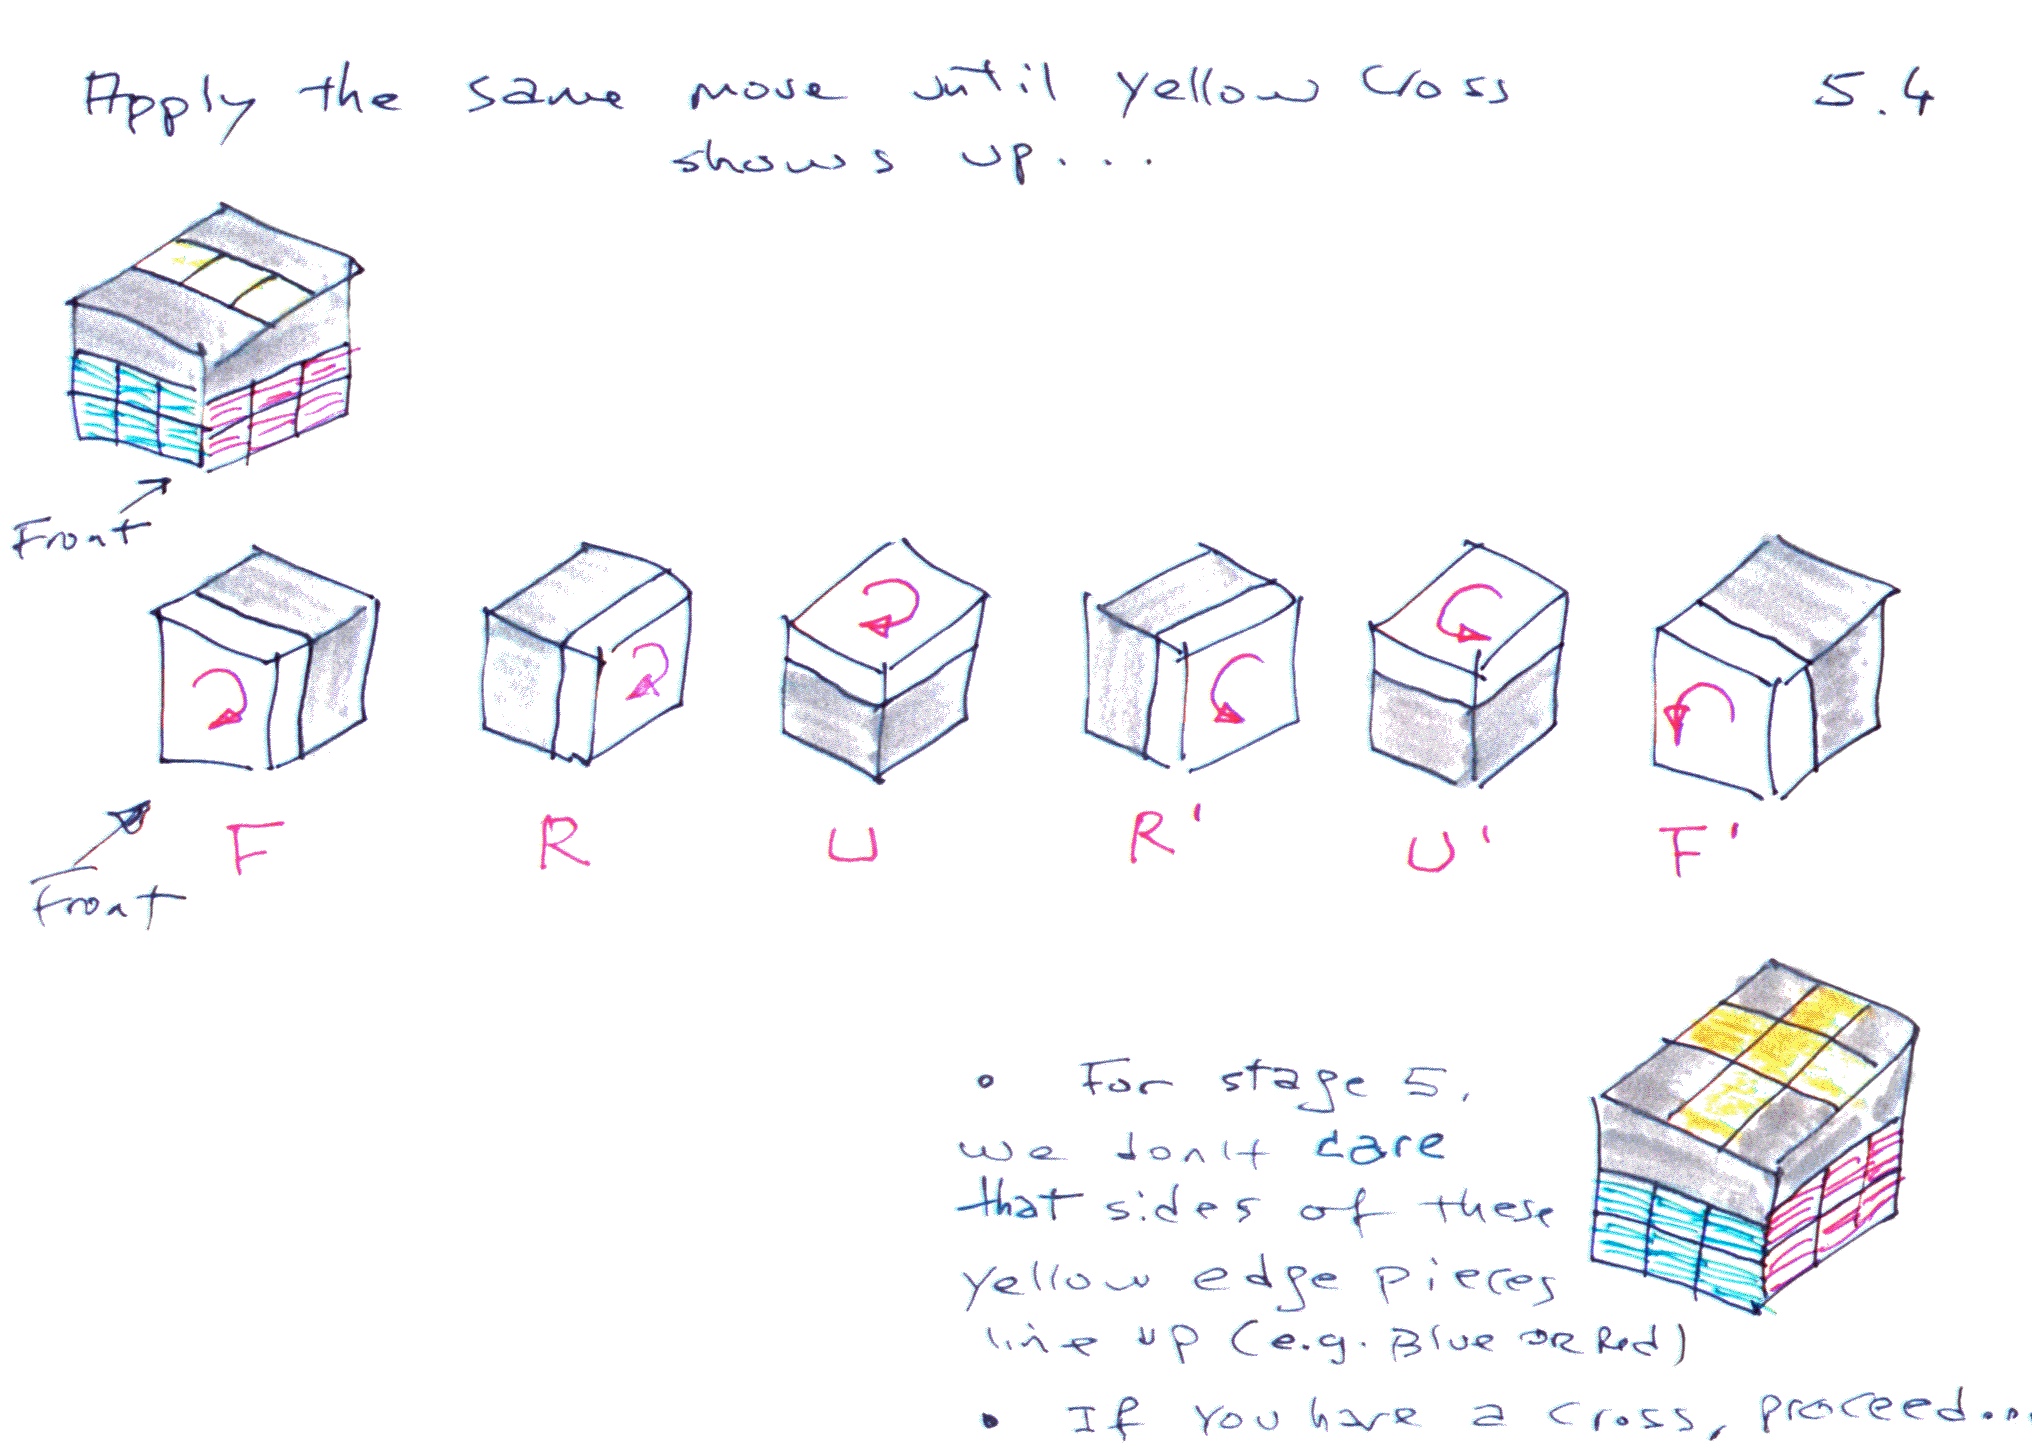 Apply the same move until yellow cross 5.4
shows up...
Front
F R U R' U' F'
Front
• For stage 5,
we don't care
that sides of these
yellow edge pieces
line up (e.g. Blue OR Red)
• If you have a cross, proceed...